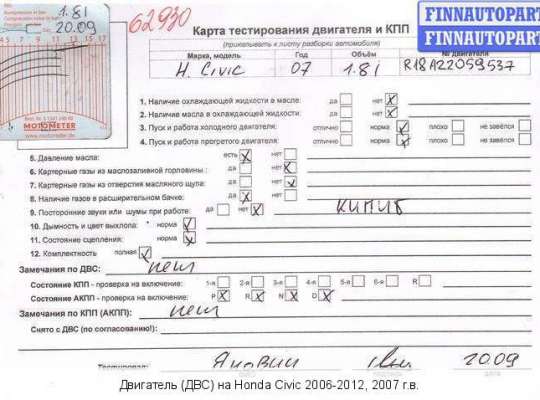 1.8i
20.09
62930
FINNAUTOPART
Карта тестирования двигателя и КПП
(прикалывать к листу разборки автомобиля)
Марка, модель Год Объём № двигателя
H. Civic 07 1.8i R18A22059537
MOTOMETER
www.motometer.de
1. Наличие охлаждающей жидкости в масле: да нет X
2. Наличие масла в охлаждающей жидкости: да нет X
3. Пуск и работа холодного двигателя: отлично норма X плохо не завёлся
4. Пуск и работа прогретого двигателя: отлично норма X плохо не завёлся
5. Давление масла: есть X нет
6. Картерные газы из маслозаливной горловины: да нет X
7. Картерные газы из отверстия масляного щупа: да нет X
8. Наличие газов в расширительном бачке: да нет X
9. Посторонние звуки или шумы при работе: да нет X
10. Дымность и цвет выхлопа: норма
11. Состояние сцепления: норма X
12. Комплектность полная
Замечания по ДВС: нет
Состояние КПП - проверка на включение: 1-я 2-я 3-я 4-я 5-я 6-я R
Состояние АКПП - проверка на включение: P X R X N X D X
Замечания по КПП (АКПП): нет
Снято с ДВС (по согласованию!):
Тестировал: 20.09
Двигатель (ДВС) на Honda Civic 2006-2012, 2007 г.в.